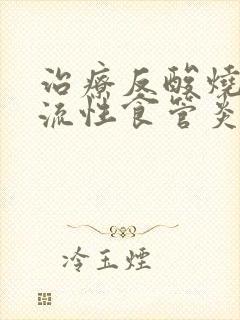 治療反酸燒
流性食管炎
冷玉煙